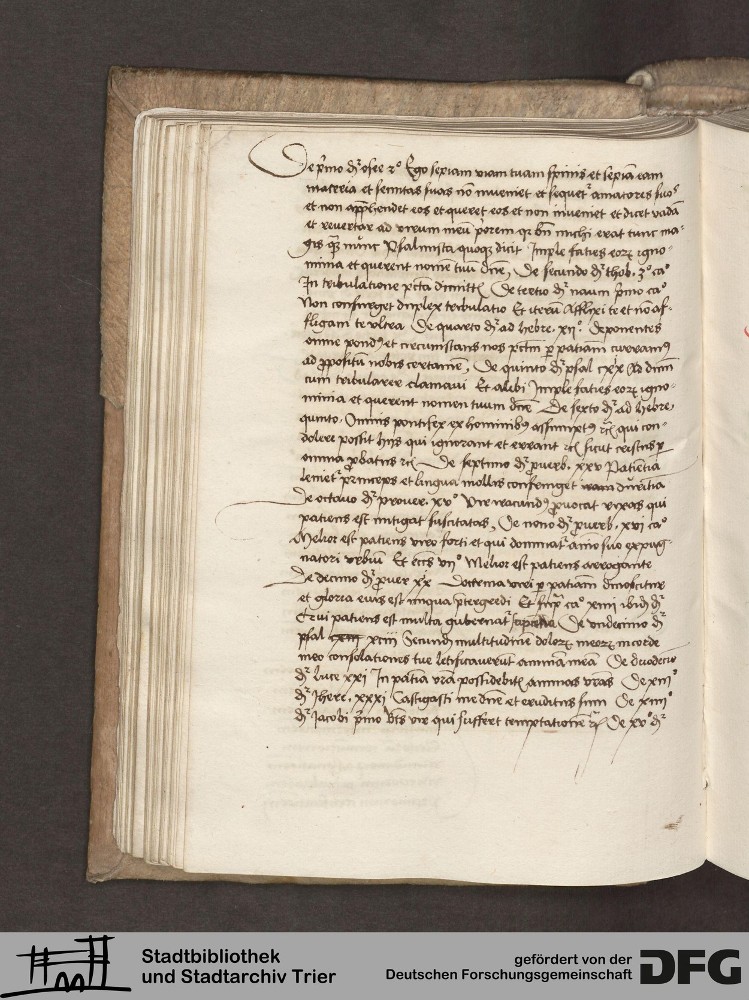 De p̄mo dr̄ osee 2° Ego sepiam viam tuam spinis et sepiā eam
maceria et semitas suas nō inveniet et sequet̄ amatores suos
et non app̄hendet eos et queret eos et non inveniet et dicet vadā
et revertar ad virum meū p̄orem qr bn̄ michi erat tunc ma-
gis qz nūnc Psalmista quoqz dicit Imple facies eorz igno-
minia et querent nomē tuū dn̄e, De secundo dr̄ thob. 3° ca°
In tribulatione pctā dimittit̄ De tertio dr̄ naum p̄mo ca°
Non consurget duplex tribulatio Et iterū Afflixi te et nō af-
fligam te ultra De quarto dr̄ ad hebre. xii° Deponentes
omne pondꝰ et circumstans nos pctm̄ p patiam curramꝰ
ad ꝓpositū nobis certamē, De quinto dr̄ psal cxix Ad dnm̄
cum tribularer clamavi Et alibi Imple facies eorz igno-
minia et querent nomen tuum dn̄e De sexto dr̄ ad hebre.
quinto. Omnis pontifex ex hominibꝰ assumptꝰ rc̄ qui con-
dolere possit hijs qui ignorant et errant rc̄ sicut cristus p
omnia ꝓbatus rc̄ De septimo dr̄ proverb. xxv Patientia
leniet̄ princeps et lingua mollis confringet iram duritia
De octavo dr̄ prover. xv° Vir iracundꝰ ꝓvocat rixas qui
patiens est mitigat suscitatas, De nono dr̄ proverb. xvi ca°
Melior est patiens viro forti et qui dominat̄ aīo suo expug-
natori urbiū Et eccs vii° Melior est patiens arrogante
De decimo dr̄ prover xix Doctrina viri p patiam dinoscitur
et gloria eius est iniqua p̄tergredi Et sup̄ ca° xiiii ibidē dr̄
Qui patiens est multa gubernat̄ De undecimo dr̄
psal xciii Secundū multitudinē dolorz meorz in corde
meo consolationes tue letificaverut animā meā De duodecīo
dr̄ luce xxi In patia vrā possidebitis animas vras De xiii°
dr̄ Jhere. xxxi Castigasti me dn̄e et eruditus sum De xiiii°
dr̄ Jacobi p̄mo Bt̄s vir qui suffert temptationē rc̄ De xv° dr̄
Stadtbibliothek
und Stadtarchiv Trier
gefördert von der
Deutschen Forschungsgemeinschaft
DFG